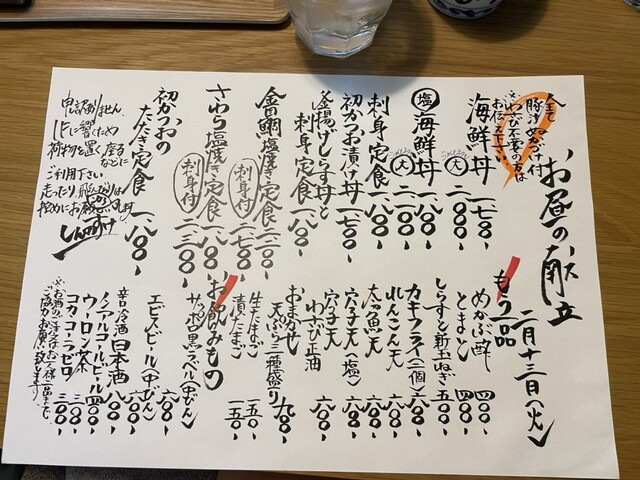 お昼の献立
二月十三日(火)
全て
豚汁、ぬか漬け付
※わさび不要の方は
お伝え下さい
海鮮丼 一、七〇〇
(大) 二、〇〇〇
(塩)海鮮丼 一、八〇〇
(大) 二、一〇〇
刺身定食 一、八〇〇
初かつお漬け丼 一、七五〇
釜揚げしらす丼と
刺身定食 一、八〇〇
金目鯛塩焼き定食 二、二〇〇
(刺身付) 二、七〇〇
さわら塩焼き定食 一、八〇〇
(刺身付) 二、三〇〇
初かつおの
たたき定食 一、八〇〇
申し訳ありません
下に響くため
荷物を置く、座る
などに
ご利用下さい
走ったり飛んだりは
控めにお願いします
しんすけ
もう一品
めかぶ酢 四〇〇
とまと 四〇〇
しらすと新玉ねぎ 五〇〇
カキフライ(二個) 六〇〇
れんこん天 六〇〇
太刀魚天 六〇〇
穴子天(塩) 六〇〇
穴子天
わさび正油 六〇〇
おまかせ
天ぷら二種盛り 九〇〇
生たまご 一五〇
漬たまご 一五〇
お飲みもの
サッポロ黒ラベル(中びん)
エビスビール(中びん)
辛口冷酒 日本酒 八〇〇
ノンアルコールビール 四〇〇
ウーロン茶 三〇〇
コカコーラゼロ 三〇〇
※お酒のご注文はお一人様二品までで
ご協力お願い致します。